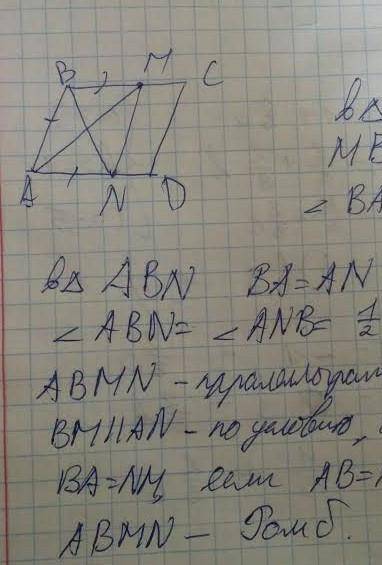 B M C
A N D
в △
MB
∠ BA
в △ ABN BA = AN
∠ ABN = ∠ ANB = 1/2
ABMN – параллелограм
BM || AN – по условию,
BA = NM, если AB =
ABMN – Ромб.